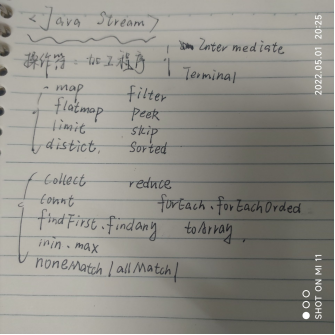 <Java Stream>
操作符：加工程序 Intermediate
Terminal
map filter
flatmap peek
limit skip
distict. Sorted
Collect reduce
count forEach. forEachOrded
findFirst. findany toArray.
min. max
noneMatch / allMatch /
2022.05.01 20:25
SHOT ON MI 11